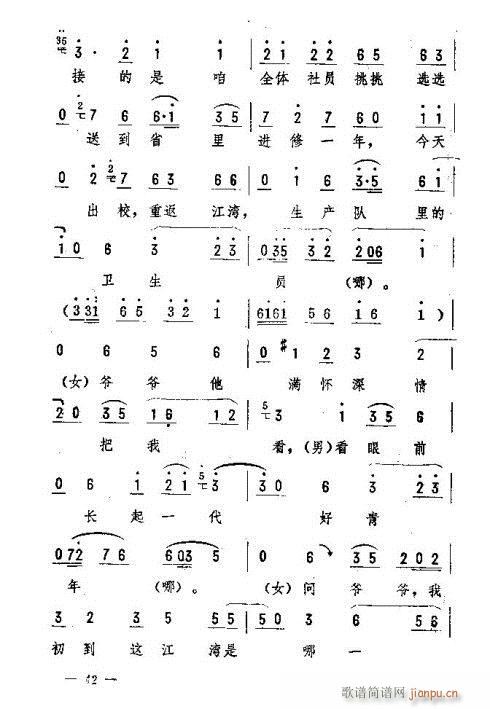 3· 2 1 1 2 1 2 2 6 5 6 3
接 的 是 咱 全体 社员 挑挑 选选
0 7 6 6·1 3 5 2 1 7 6 0 1 1
送 到 省 里 进 修 一 年，今天
0 2 7 6 3 6 6 0 1 6 3·5 6 1
出 校，重返 江湾，生 产 队 里的
1 0 6 3 2 3 0 3 5 3 2 2 0 6 1
卫 生 员 (哪)。
(3 3 1 6 5 3 2 1 6 1 6 1 5 6 1 6 1)
0 6 5 6 0 #1 2 3 2
(女) 爷 爷 他 满 怀 深 情
2 0 3 5 1 6 1 2 3 0 3 5 6
把 我 看，(男)看 眼 前
0 6 1 2 1 3 3 0 6 3 2 3
长 起 一 代 好 青
0 7 2 7 6 6 0 3 5 0 6 3 5 2 0 2
年 (哪)。 (女)问 爷 爷，我
3 2 3 5 5 5 0 3 6 5 6
初 到 这 江 湾是 哪 一
— 42 —
歌谱简谱网
jianpu.cn